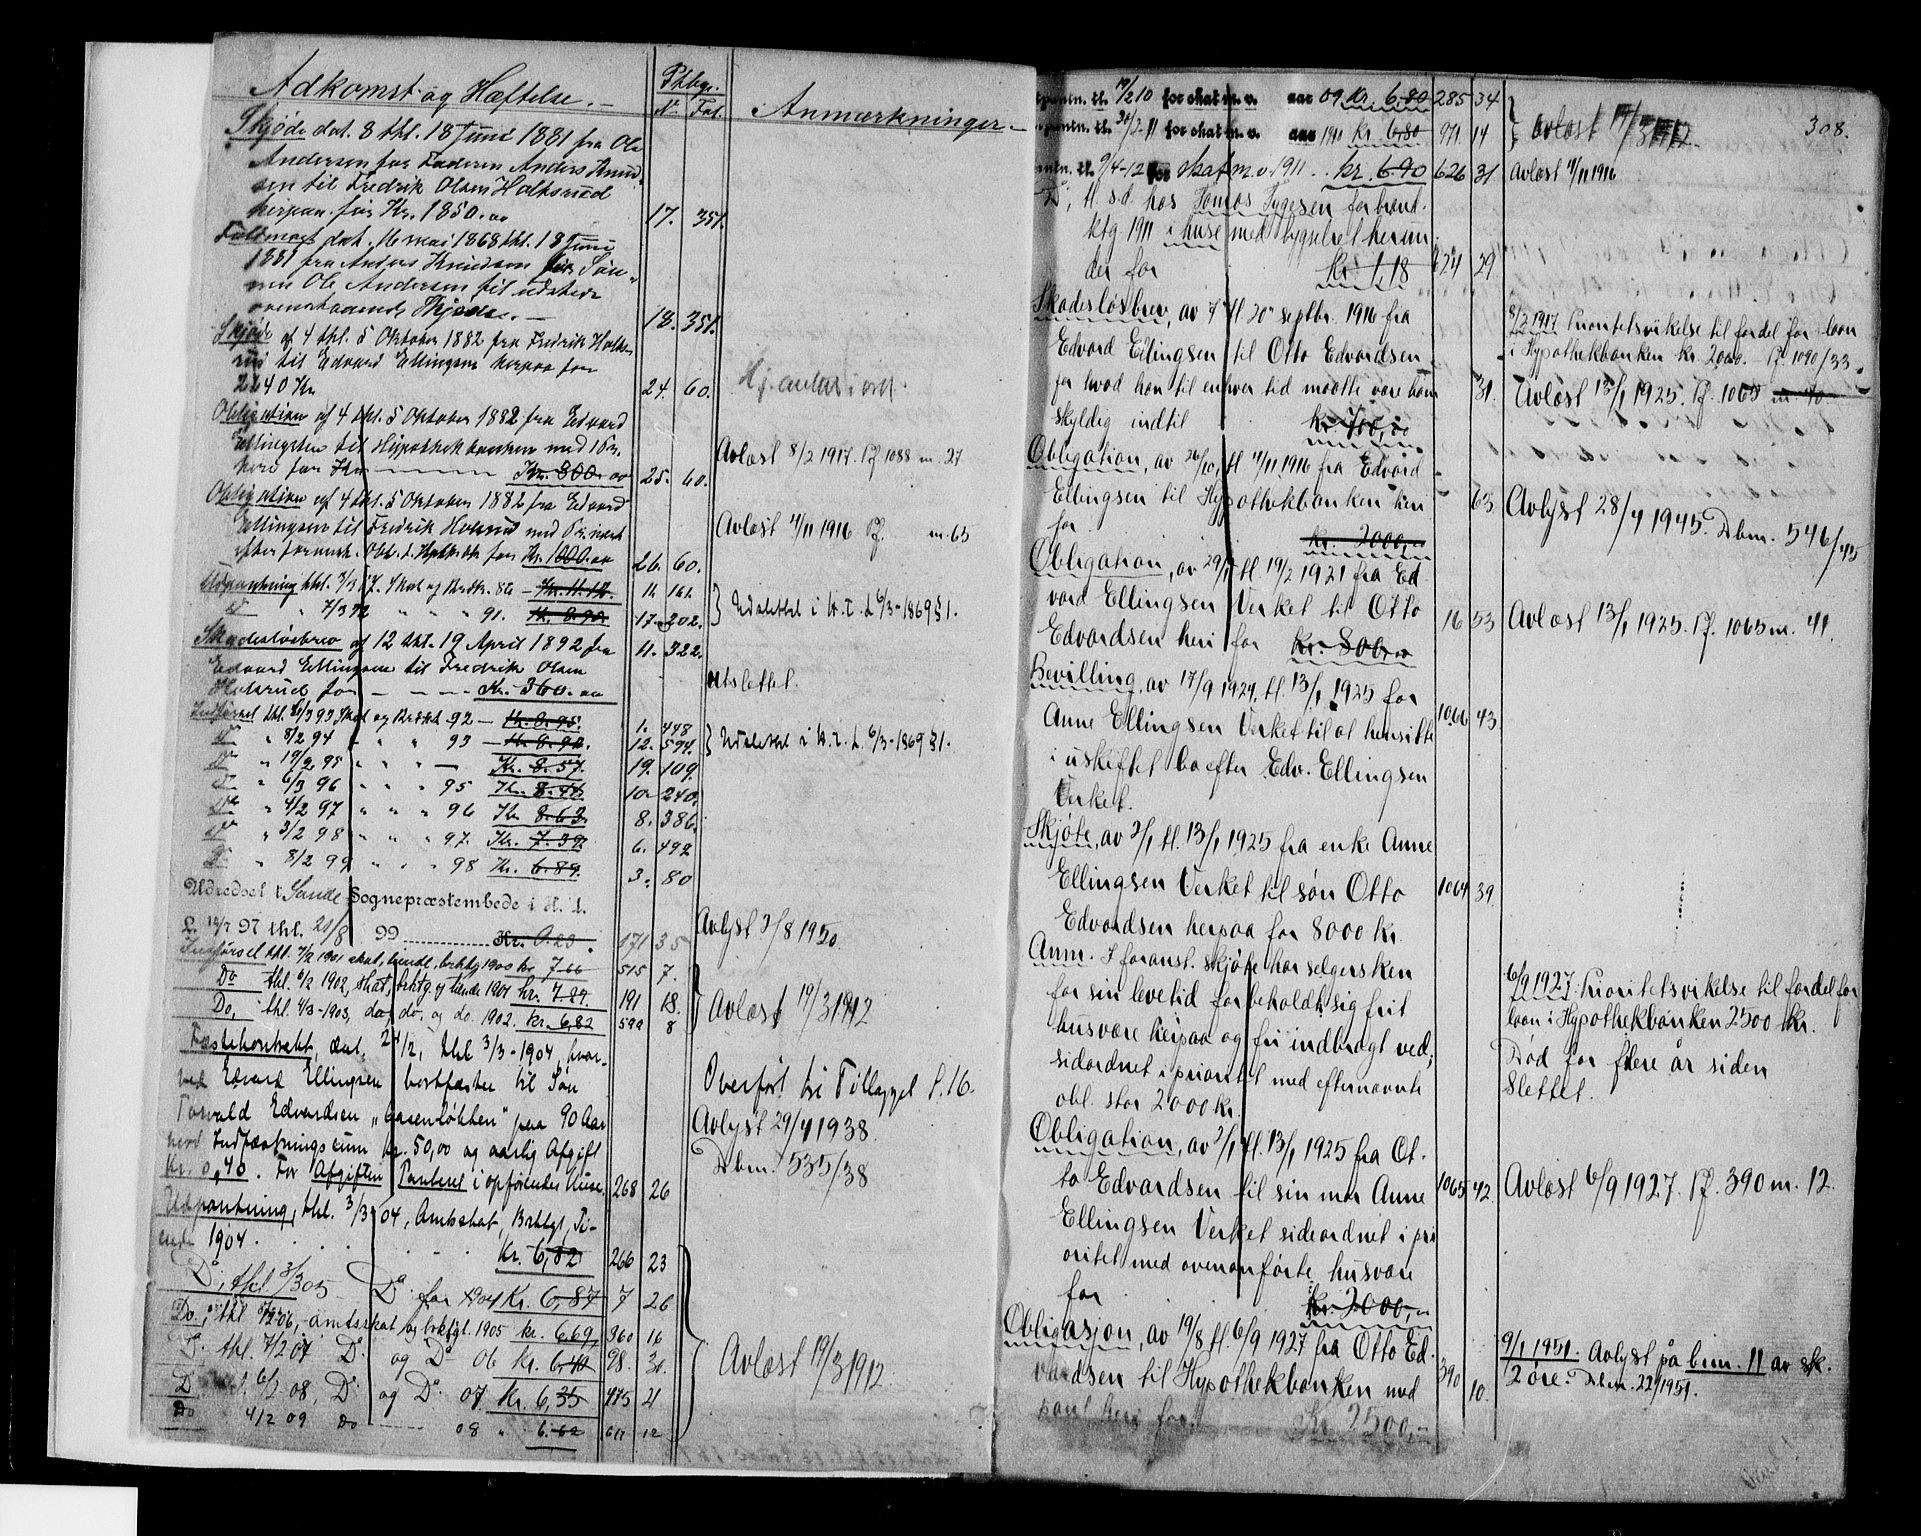 Adkomst og Hæftelse.
Ptbgr.
N. Fol.
Anmærkninger
Skjøde dat. 8 thl. 18 Juni 1881 fra Ole
Andersen for Faderen Anders Knud-
sen til Fredrik Olsen Holtsrud
herpaa for Kr. 1850.00
17. 351.
Fuldmagt dat. 16 mai 1868 thl. 18 Juni
1881 fra Anders Knudsen til Søn-
nen Ole Andersen til udstede
ovenstaaende Skjøde.
18. 351.
Skjøde af 4 thl. 5 Oktober 1882 fra Fredrik Holts-
rud til Edvard Ellingsen herpaa for
2240 Kr
24. 60.
Obligation af 4 thl. 5 Oktober 1882 fra Edvard
Ellingsen til Hypothekbanken med 1 Pr.
heri for Kr. 800.00
25. 60.
Avlæst 8/2 1917. Pf 1088 m. 27
Obligation af 4 thl. 5 Oktober 1882 fra Edvard
Ellingsen til Fredrik Holsrud med Prioritet
efter foranst. Obl. t. Hptbk for Kr. 1000.00
26. 60.
Avlæst 4/11 1916 Pf. m. 65
Udpantning thl. 3/3 87. Skat og Brdk. 86 Kr. 11.12
11. 161.
Do " 7/3 92 " " " 91. Kr. 8.90
17. 202.
Udslettet i H. t. L 6/3-1869 §1.
Skadesløsbrev af 12 thl. 19 April 1892 fra
11. 322.
Edvard Ellingsen til Fredrik Olsen
Holsrud for Kr. 360.00
Utslettet.
Indførsel thl. 3/3 93 Skat og Brdkt 92 Kr. 8.95.
1. 448
Do " 8/2 94 " " 93 Kr. 8.92.
12. 594.
Udslettet i H. t. L. 6/3-1869 §1.
Do " 19/2 95 " " " Kr. 8.57.
19. 109.
Do " 6/3 96 " " " 95
10. 240.
Do " 4/2 97 " " " 96 Kr. 8.63.
8. 386.
Do " 3/2 98 " " " 97. Kr. 7.39.
6. 492
Do " 8/2 99 " " " 98 Kr. 6.89.
3. 80
Udredsel t. Sande Sognepræstembede i H. t.
L. 14/7 97 thl. 20/8 99 Kr. 0.20.
171 35
Avlyst 3/8 1920.
Indførsel thl. 7/2 1901 skat, tiende, brktg 1900 kr 7.66
515 7.
Do thl. 6/2 1902, skat, brktg og tiende 1901 kr. 7.27.
191 18.
Do, thl. 4/3-1903, do, do, og do. 1902. kr. 6,82
599 8
Avlæst 19/3 1912
Fæstekontrakt, dat. 24/2, thl 3/3-1904, hvor-
ved Edvard Ellingsen bortfæster til Søn
Torvald Edvardsen "Gasenløkken" paa 90 Aar
mod Indfæstningssum kr. 50,00 og aarlig Afgift
Kr. 0,40. For Afgiften Panteret i opførendes Huse.
268 26
Overført til Tillægget f. 16.
Avlyst 29/4 1938.
Dbm. 535/38
Udpantning, thl. 3/3 04, Amtsskat, Brktgt, Ti-
ende 1904. Kr. 6,82
266 23
Do, thl 3/3 05 Do for 1904 Kr. 6,87
7 26
Do, thl 8/2 06, amtsskat og brktgt. 1905 kr. 6.69,
360 16
Do thl. 7/2 07 Do og Do 06 Kr. 6.40
98. 30.
Do thl. 6/2 08, Do og Do 07 Kr. 6,35
475 21
Do 4/2 09 Do 08 " 6.62
611 12
Avlæst 19/3 1912.
308.
Udpantn. tl. 19/2 10 for skat m. v. aar 09 Kr. 6.80 285 34
Udpantn. tl. 30/2 11 for skat m. v. aar 1910 kr. 6.80 971 14
Avlæst 19/3 1912.
Udpantn. tl. 9/4-12 for skat m. v. 1911 kr. 6.90 626 31
Avlæst 4/11 1916
Do, tl. s.d. hos Tomas Tygesen for brand-
ktg 1911 i huse med bygselret herun-
der for kr. 1.18
624 29
Skadesløsbrev, av 7 tl 20 septbr. 1916 fra
Edvard Ellingsen til Otto Edvardsen
for hvad han til enhver tid maatte være ham
skyldig indtil kr. 700,00
31.
8/2 1917 Prioritetsvikelse til fordel for laan
i Hypothekbanken kr. 2000.- Pf. 1090/33.
Avlæst 13/1 1925. Pf. 1065 m. 40
Obligation, av 26/10, tl 4/11 1916 fra Edvard
Ellingsen til Hypothekbanken heri
for kr. 2000,00
63
Avlyst 28/4 1945. Dbm. 546/45
Obligation, av 29/1 tl. 19/2 1921 fra Ed-
vard Ellingsen Verket til Otto
Edvardsen heri for kr. 800,00
16 53
Avlæst 13/1 1925. Pf. 1065 m. 41.
Bevilling, av 17/9 1924, tl. 13/1 1925 for
Anne Ellingsen Verket til at hensitte
i uskiftet bo efter Edv. Ellingsen
Verket.
1066 43.
Skjøte, av 2/1 tl. 13/1 1925 fra enke Anne
Ellingsen Verket til søn Otto
Edvardsen herpaa for 8000 kr.
1064 39.
Anm. I foranst. skjøte har selgersken
for sin levetid forbeholdt sig frit
husvære herpaa og fri indbragt ved,
sidordnet i prioritet med efternævnte
obl. stor 2000 kr.
6/9 1927. Prioritetsvikelse til fordel for
laan i Hypothekbanken 2500 kr.
Død for flere år siden
Slettet.
Obligation, av 2/1 tl. 13/1 1925 fra Ot-
to Edvardsen til sin mor Anne
Ellingsen Verket sideordnet i pri
oritet med ovenanførte husvære
for kr. 2000,00
1065 42.
Avlæst 6/9 1927. Pf. 390 m. 12.
Obligasjon, av 19/8 tl. 6/9 1927 fra Otto Ed-
vardsen til Hypothekbanken med
pant heri for Kr. 2500,00
390 10.
9/1 1951. Avlyst på bnr. 11 av sk.
2 øre. Dbm. 22/1951.